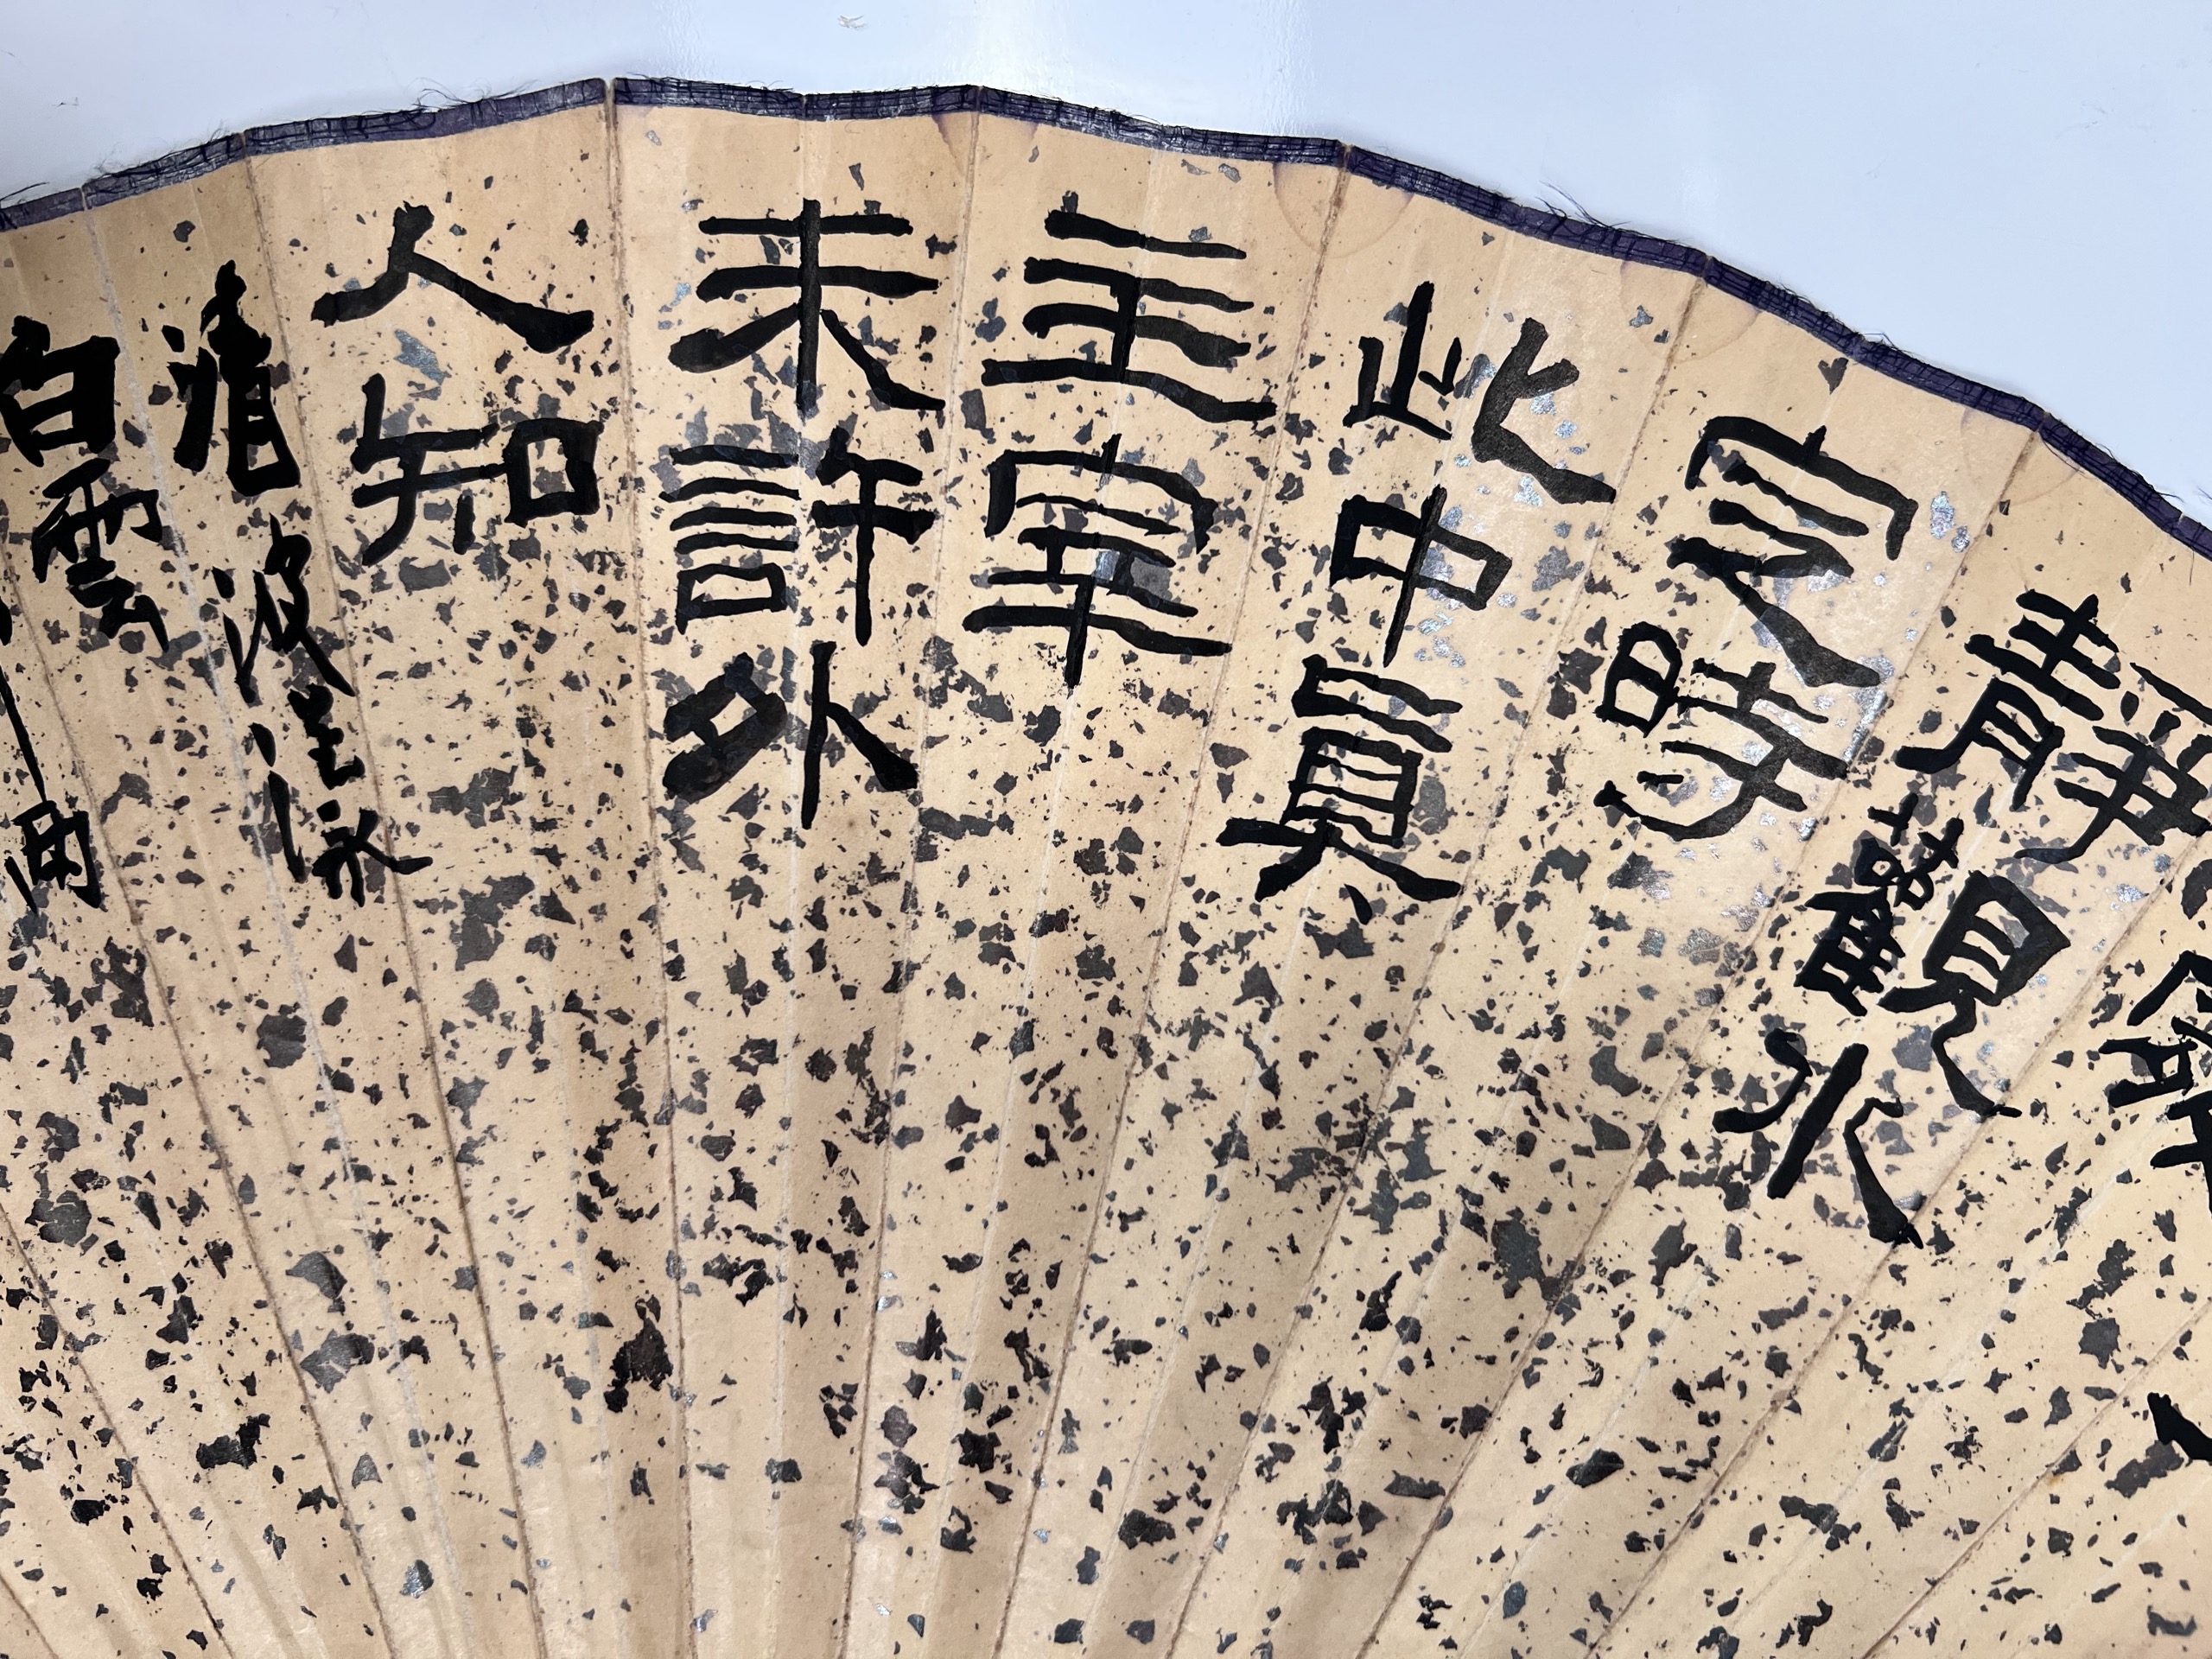 靜觀水
定時
此中真
主宰
未許外
人知
清波
白雲